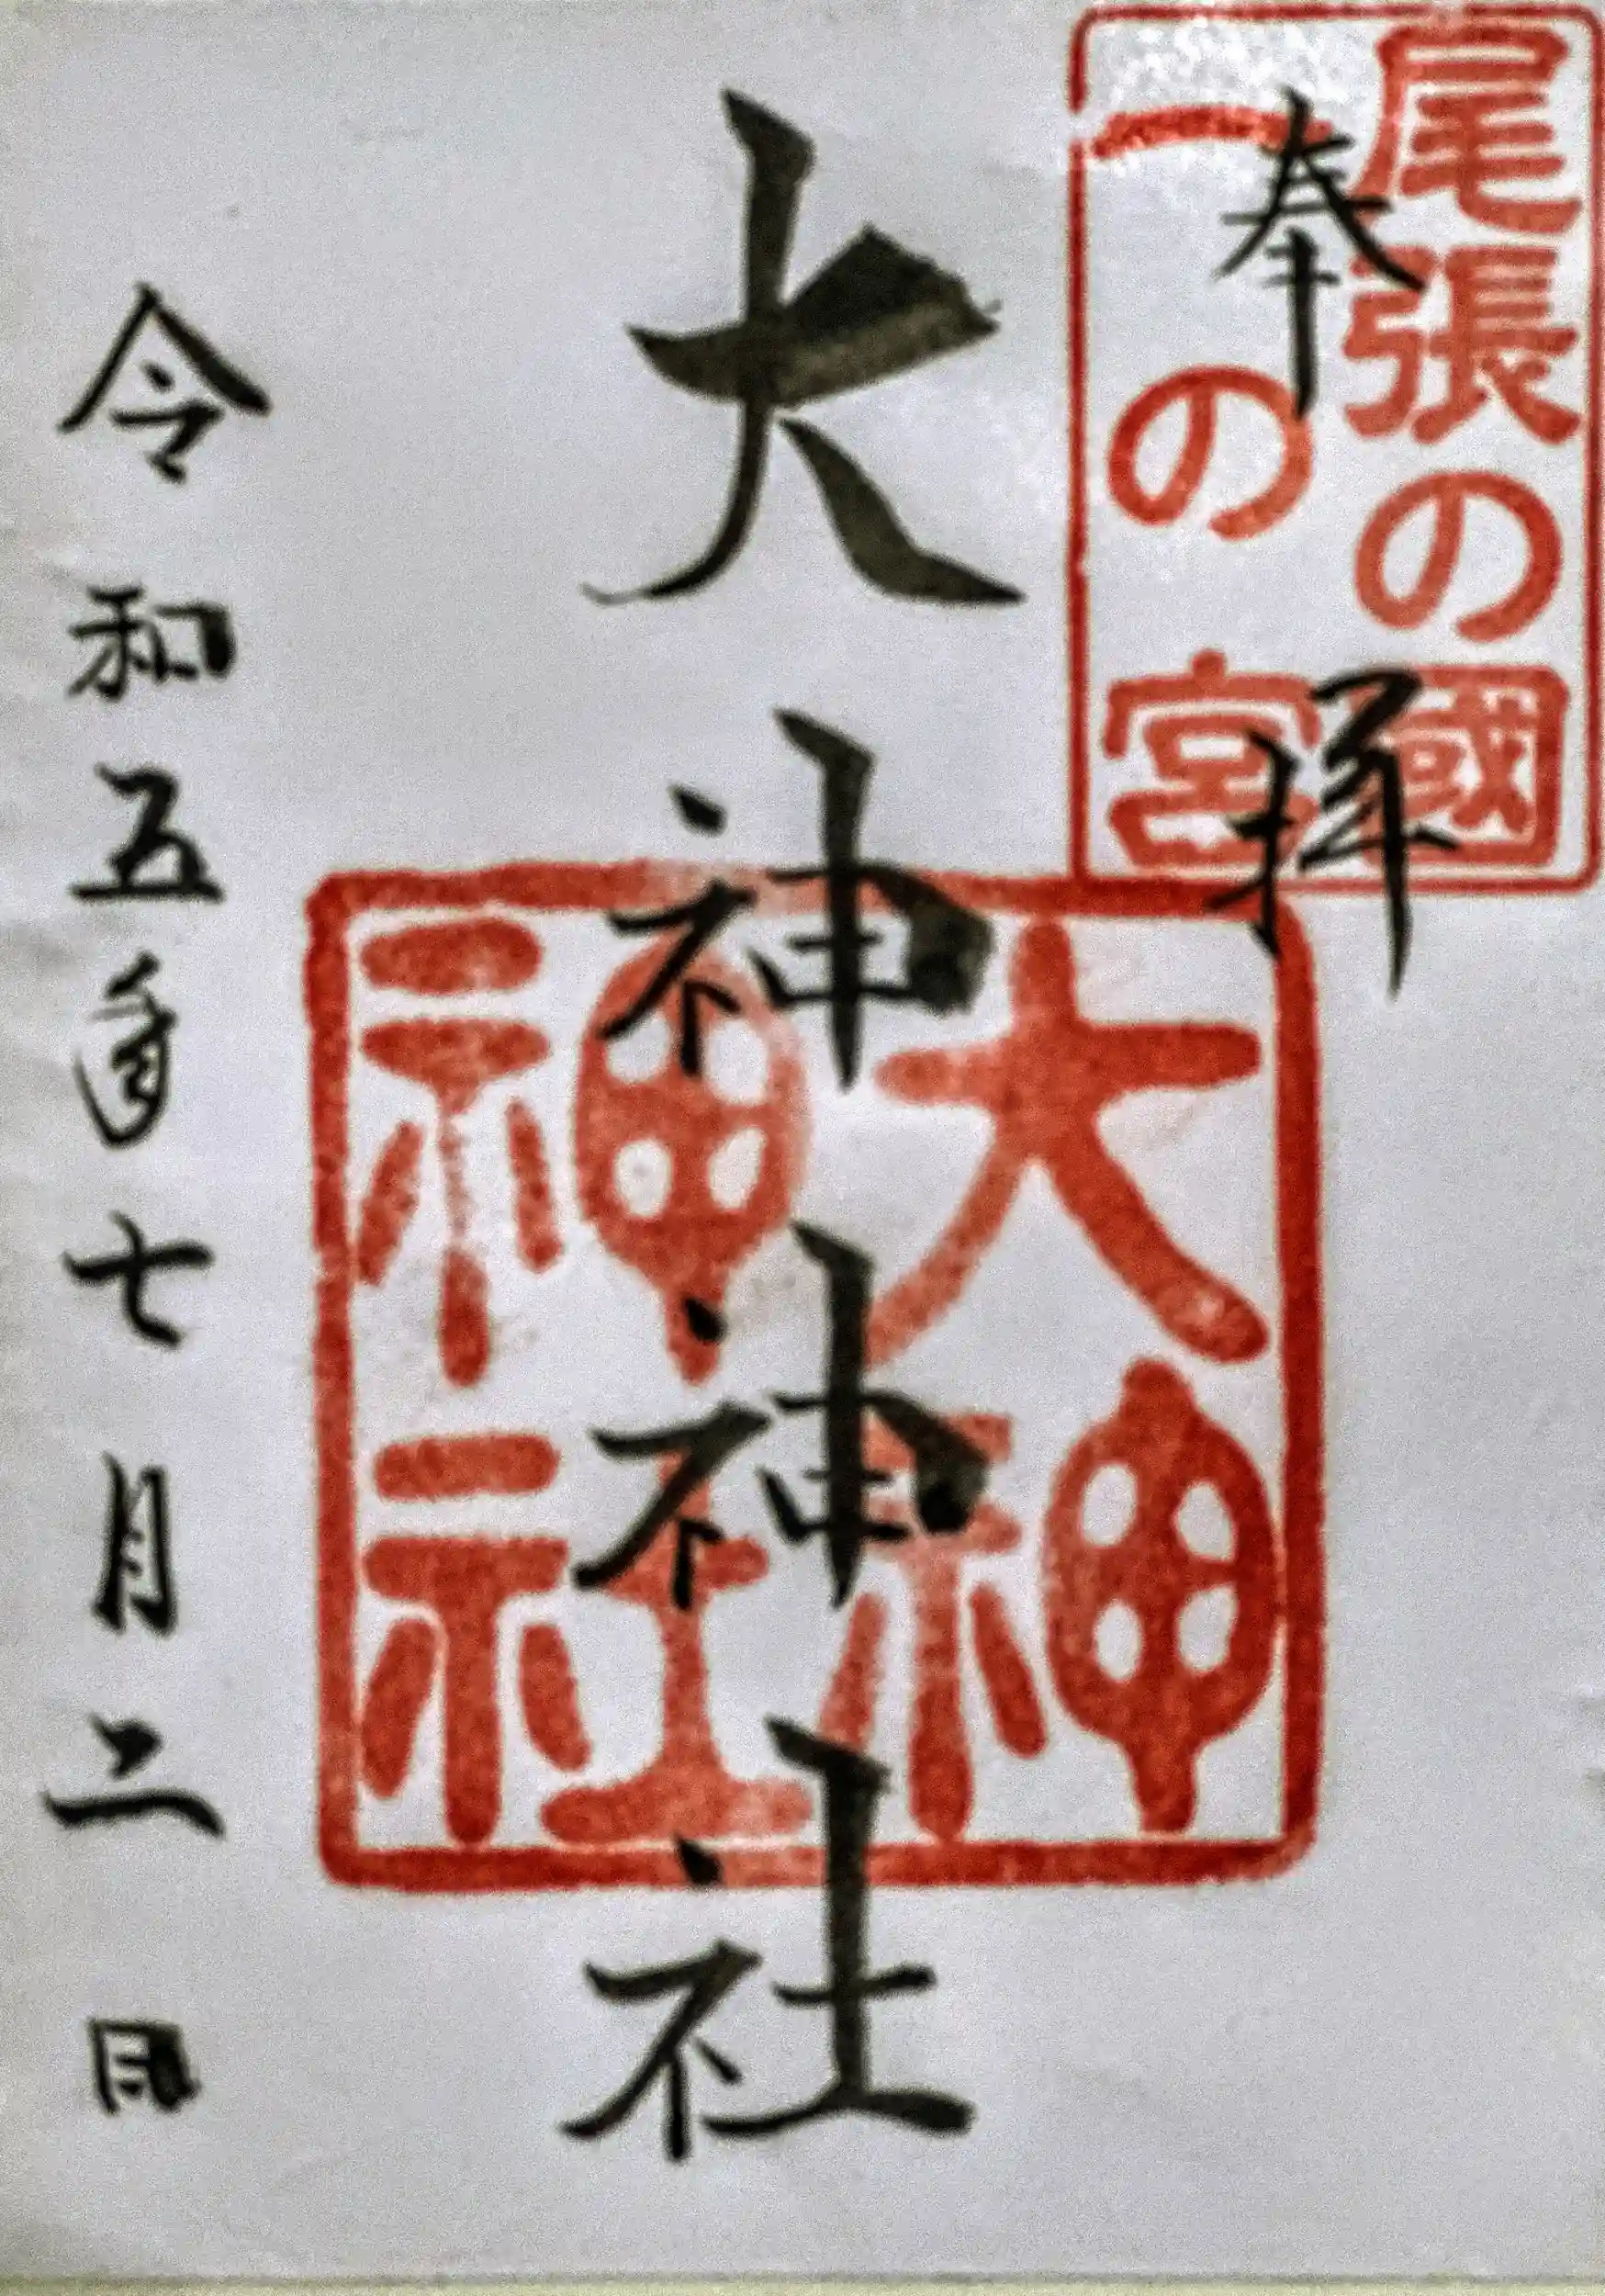 尾張の國
一の宮
奉拝
大神神社
大神
神社
令和五年七月二日